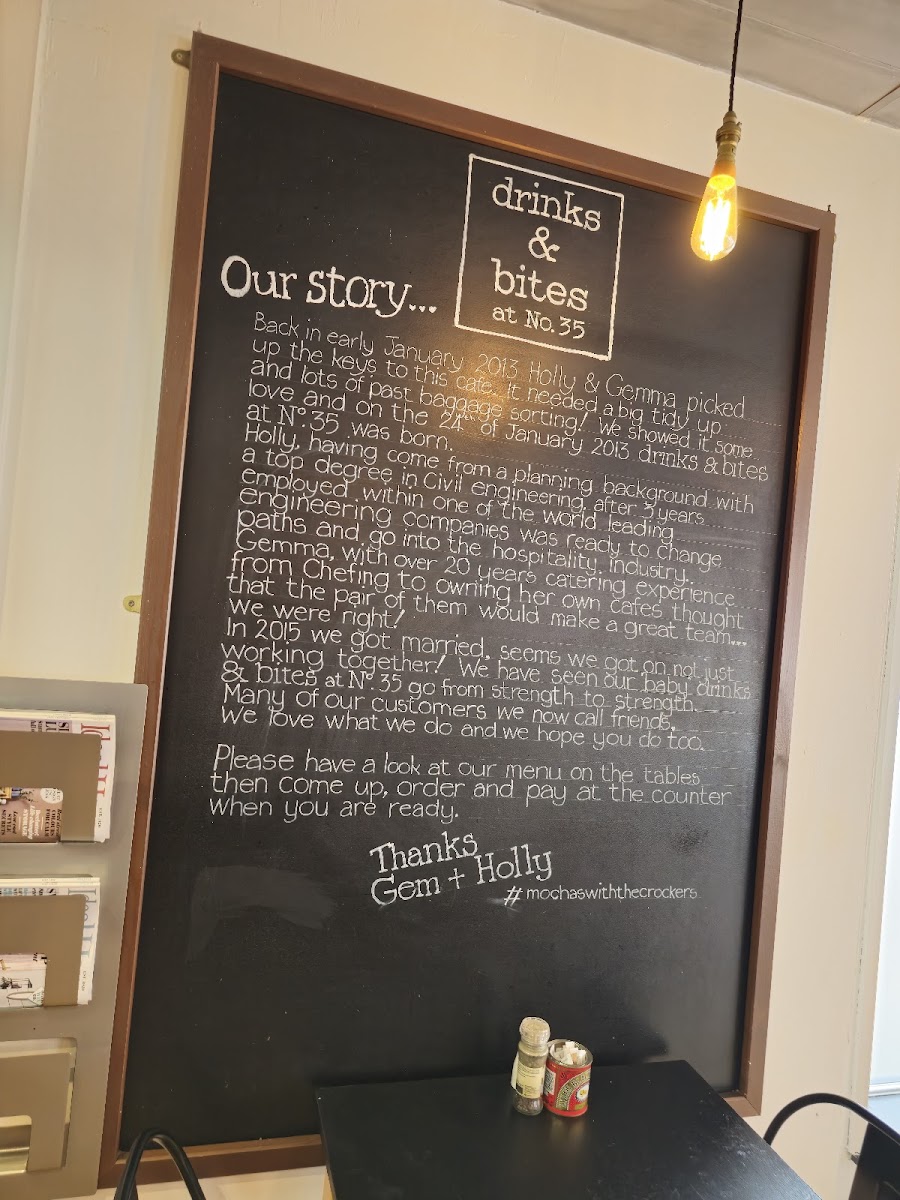 drinks
&
bites
at No. 35
Our story...
Back in early January 2013 Holly & Gemma picked
up the keys to this cafe. It needed a big tidy up
and lots of past baggage sorting! We showed it some
love and on the 24th of January 2013 drinks & bites
at No. 35 was born.
Holly, having come from a planning background with
a top degree in Civil engineering, after 3 years
employed within one of the world leading
engineering companies was ready to change
paths and go into the hospitality industry.
Gemma, with over 20 years catering experience
from Chefing to owning her own cafes thought
that the pair of them would make a great team...
we were right!
In 2015 we got married, seems we got on not just
working together! We have seen our baby drinks
& bites at No. 35 go from strength to strength.
Many of our customers we now call friends.
We love what we do and we hope you do too.
Please have a look at our menu on the tables
then come up, order and pay at the counter
when you are ready.
Thanks
Gem + Holly
#mochaswiththecrockers